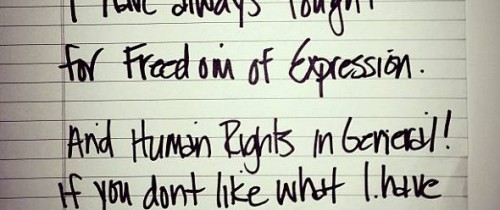 I have always fought
for Freedom of Expression.
And Human Rights in General!
if you dont like what I have